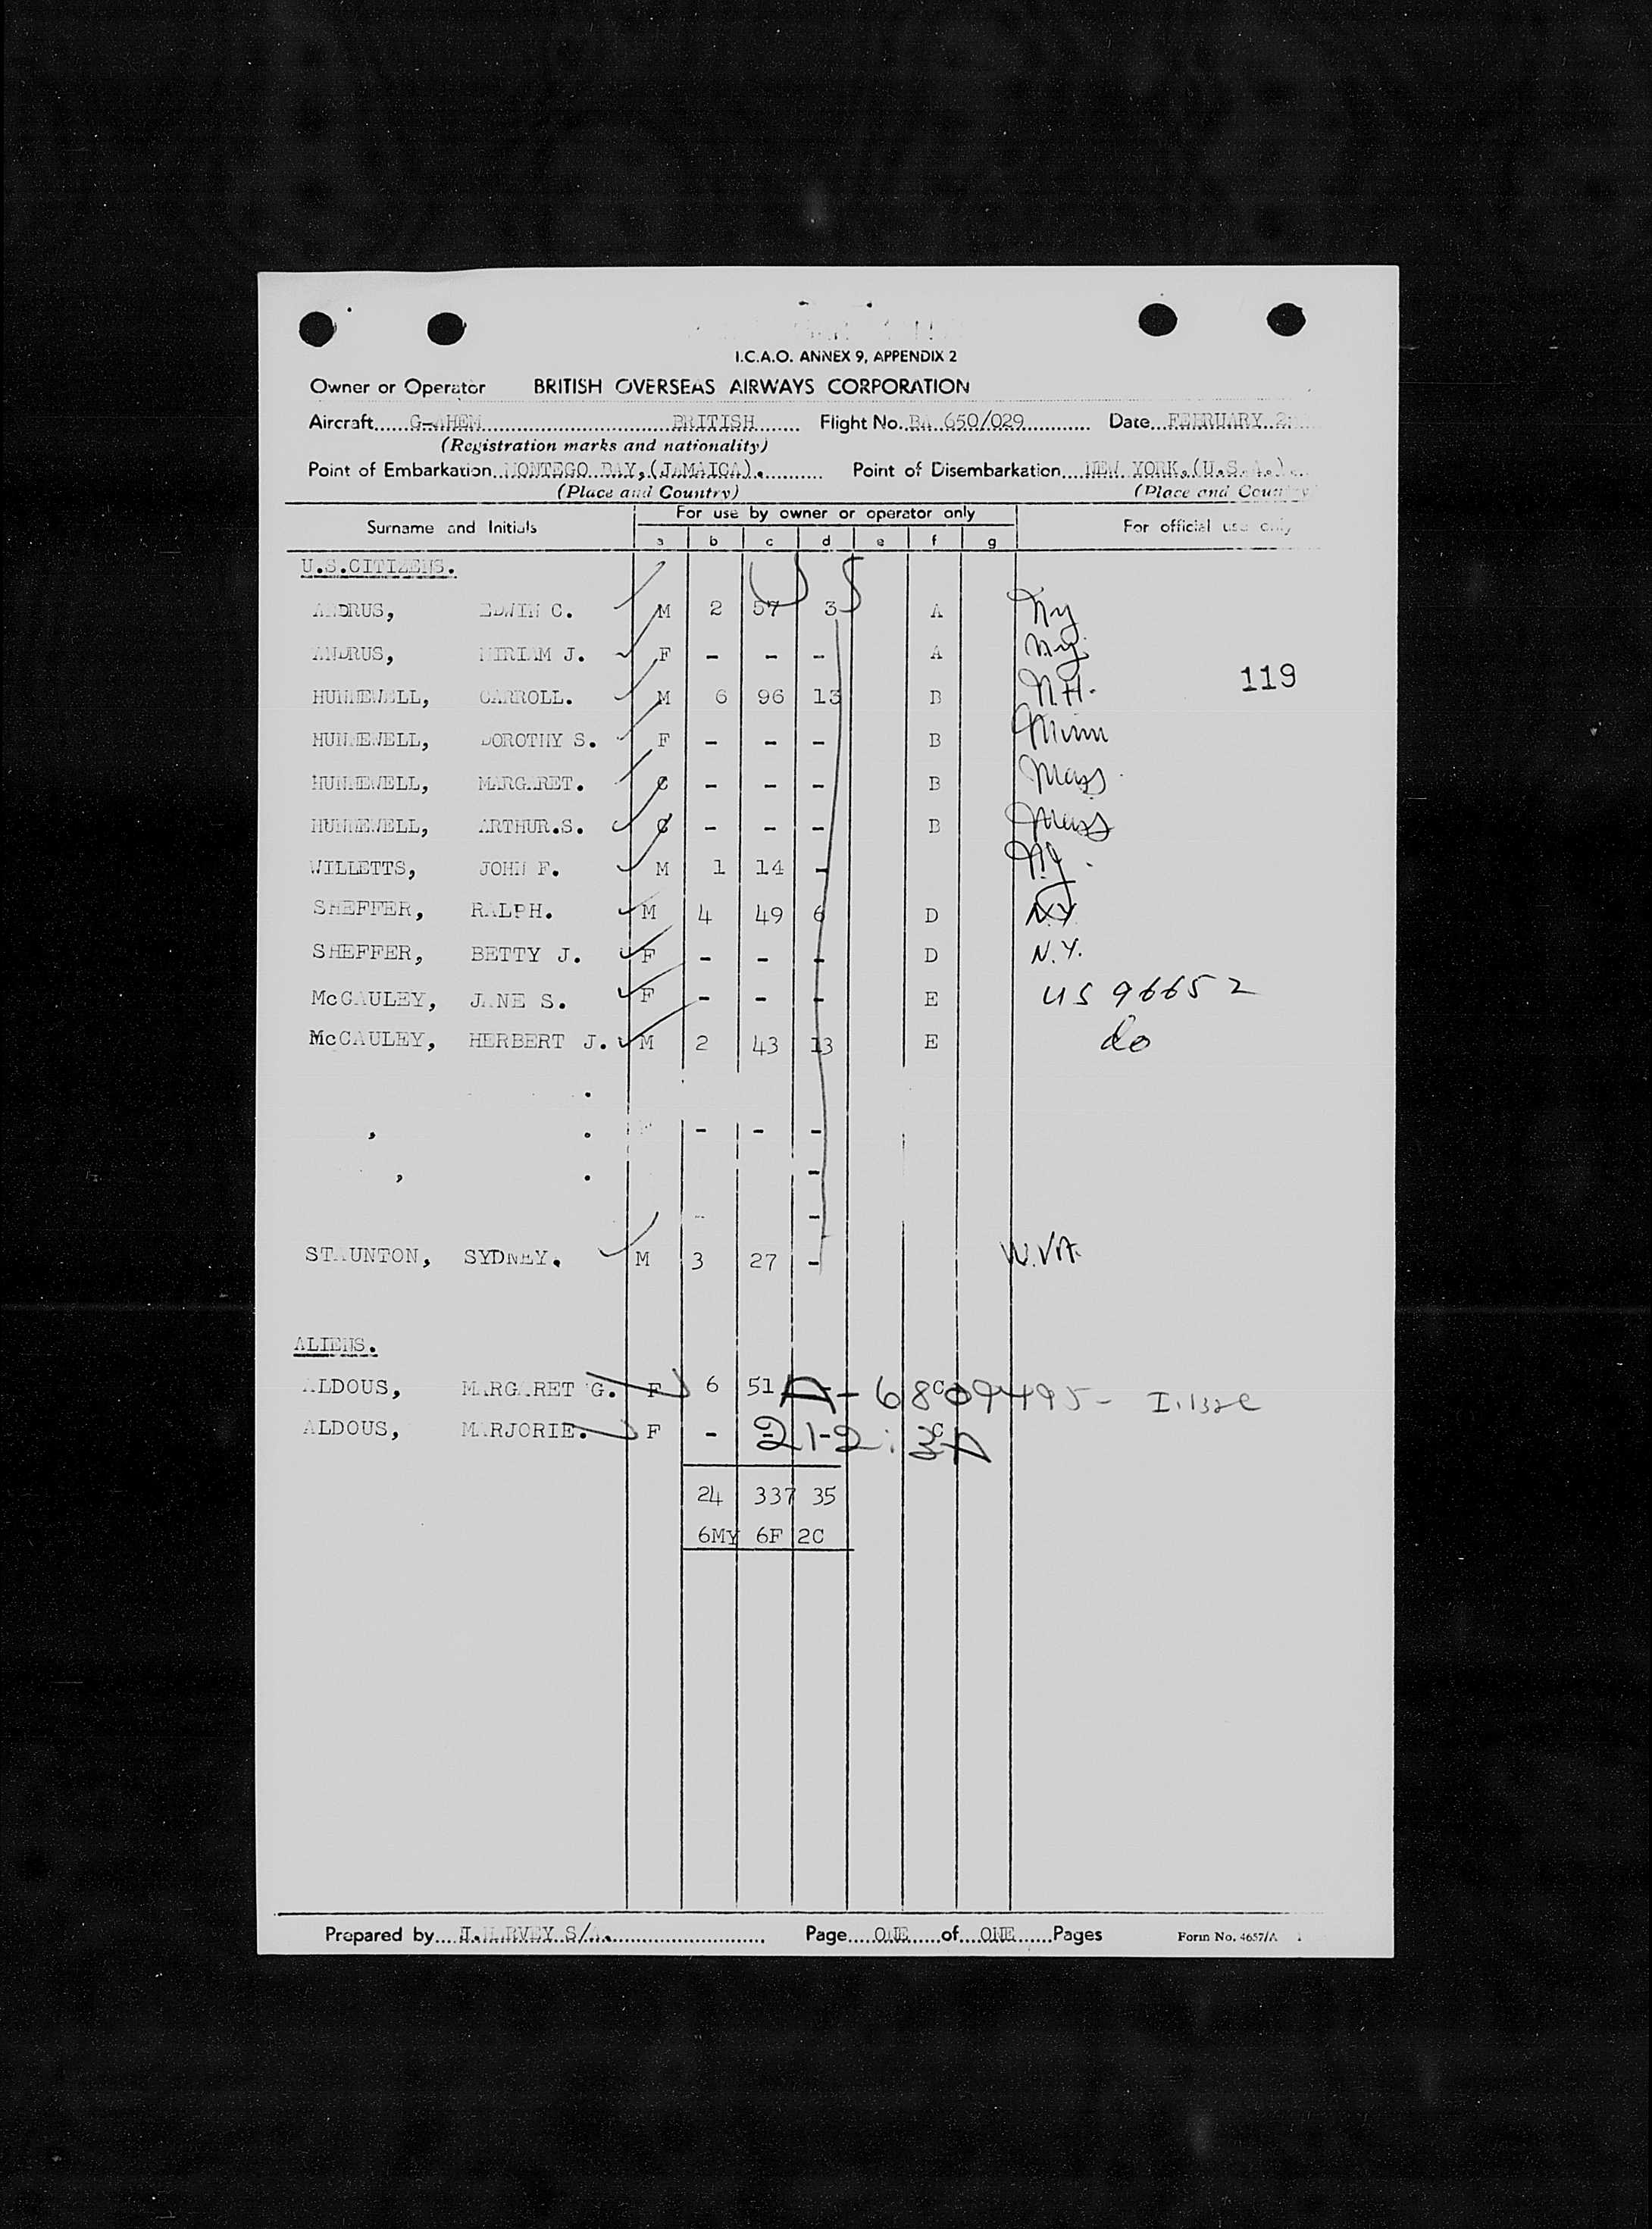 I.C.A.O. ANNEX 9, APPENDIX 2
Owner or Operator BRITISH OVERSEAS AIRWAYS CORPORATION
Aircraft.....G-AHEM.....BRITISH..... Flight No. BA 650/029..... Date...FEBRUARY 2
(Registration marks and nationality)
Point of Embarkation MONTEGO BAY,(JAMAICA).......... Point of Disembarkation....NEW YORK,(U.S.A.)...
(Place and Country) (Place and Country
Surname and Initials For use by owner or operator only For official use only
a b c d e f g
U.S.CITIZENS. US
ANDRUS, EDWIN C. M 2 57 3 A NY
ANDRUS, MIRIAM J. F - - - A NY
119
HUNNEWELL, CARROLL. M 6 96 13 B N.H.
HUNNEWELL, DOROTHY S. F - - - B Minn
HUNNEWELL, MARGARET. C - - - B Mass.
HUNNEWELL, ARTHUR.S. C - - - B Mass
WILLETTS, JOHN F. M 1 14 -
SHEFFER, RALPH. M 4 49 6 D N.Y.
SHEFFER, BETTY J. F - - - D N.Y.
McCAULEY, JANE S. F - - - E US 96652
McCAULEY, HERBERT J. M 2 43 13 E do
.
, . - - -
, . -
- -
STAUNTON, SYDNEY. M 3 27 - W.VA.
ALIENS.
ALDOUS, MARGARET G. F 6 51 C A-6809495-
ALDOUS, MARJORIE. F - C 21-2:3A
24 337 35
6My 6F 2C
Prepared by....J.HARVEY S/A..... Page....ONE....of...ONE.....Pages Form No. 4657/A 1